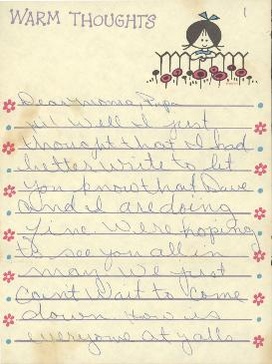 WARM THOUGHTS
1
Dear moma, Papa
Hi! Well I just
thought that I had
better write to let
you know that Dave
and I are doing
fine. We're hoping
to see you all in
may. We just
can't wait to come
down. How is
everyone at yalls